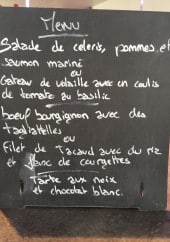 Menu
Salade de celeris, pommes et
saumon mariné
ou
Gateau de volaille avec un coulis
de tomate au basilic
boeuf bourgignon avec des
tagliatelles
ou
Filet de Tacaud avec du riz
et flanc de courgettes
Tarte aux noix
et chocolat blanc.